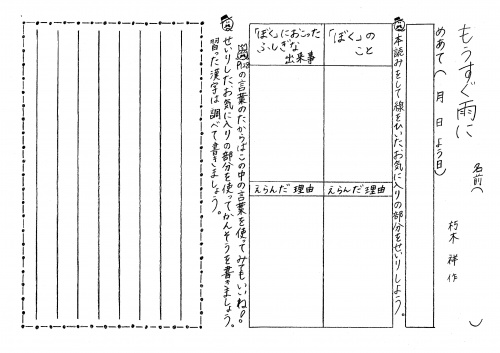 もうすぐ雨に
名前（　　　）
朽木 祥 作
めあて（　月　日　よう日）
本読みをして線をひいたお気に入りの部分をせいりしよう。
「ぼく」の
こと
「ぼく」におこった
ふしぎな
出来事
えらんだ理由
えらんだ理由
の言葉のたからばこの中の言葉を使ってみてもいいね！
せいりしたお気に入りの部分を使ってかんそうを書きましょう。
習った漢字は調べて書きましょう。